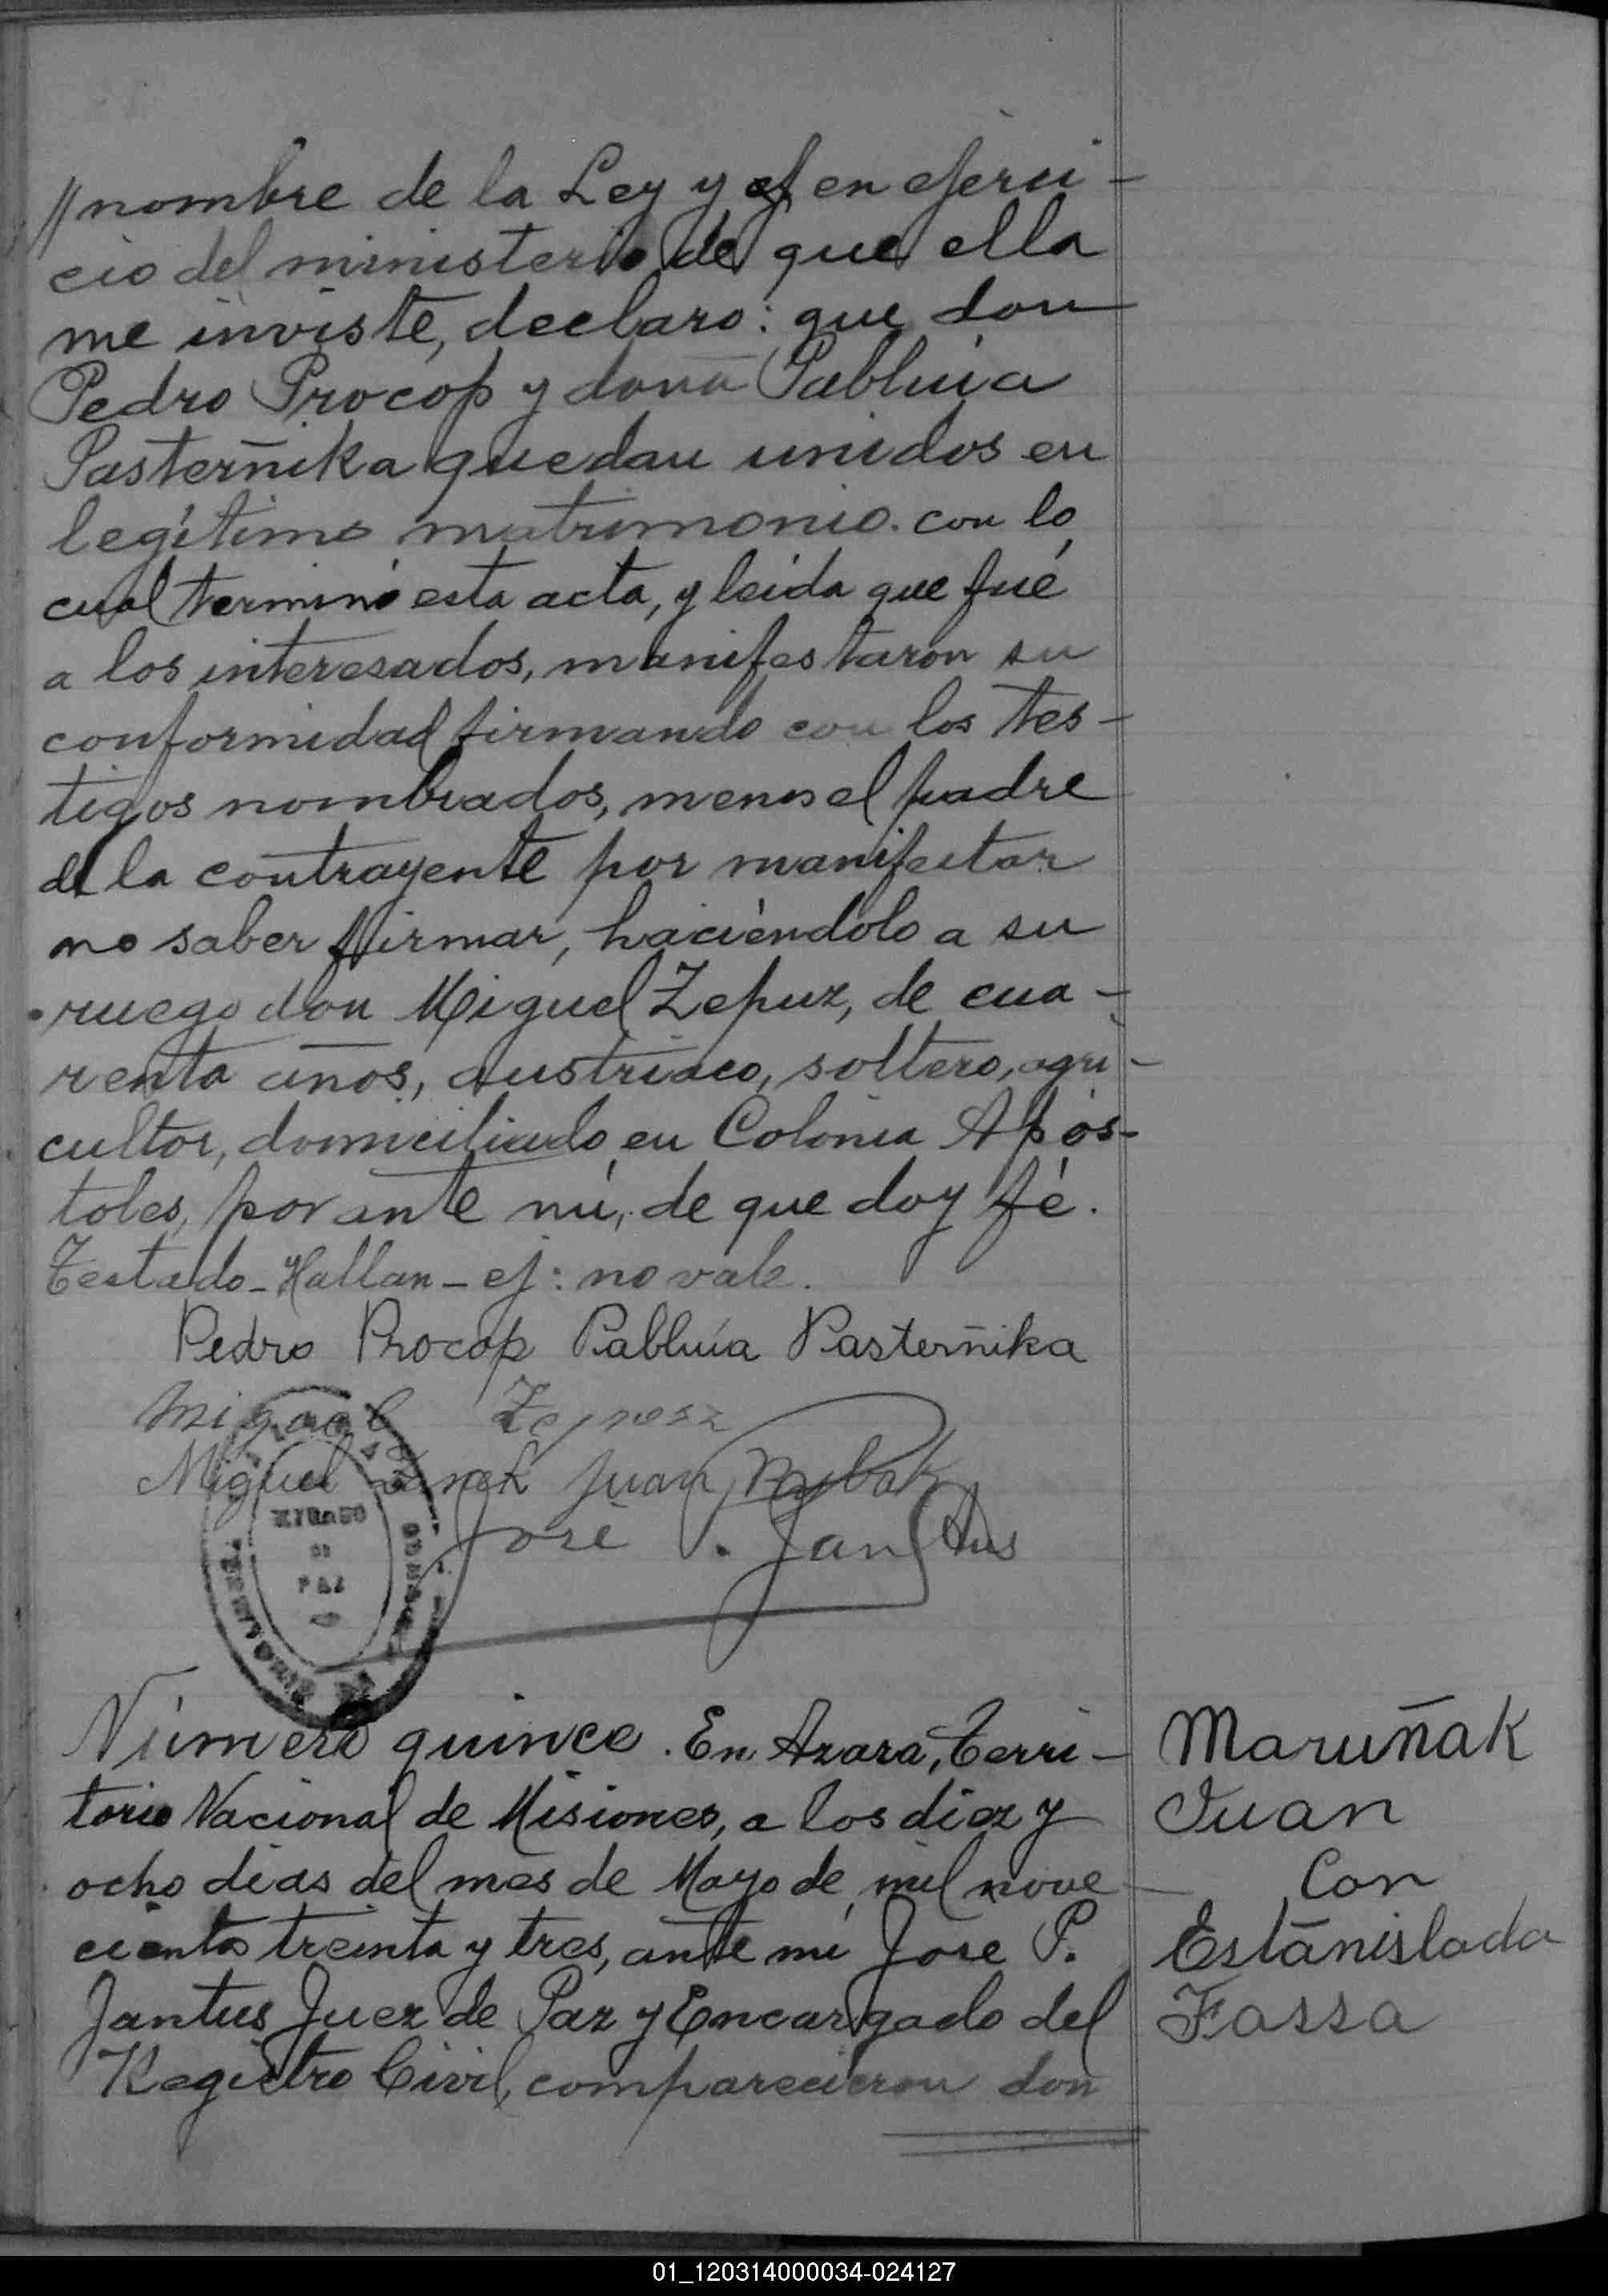 //nombre de la Ley y ej en ejerci-
cio del ministerio de que ella
me inviste, declaro: que don
Pedro Procop y doña Pabluia
Pasterñika quedan unidos en
legítimo matrimonio. con lo
cual terminó esta acta, y leida que fué
a los interesados, manifestaron su
conformidad firmando con los tes-
tigos nombrados, menos el padre
de la contrayente por manifestar
no saber firmar, haciéndolo a su
ruego don Miguel Zepuz, de cua-
renta años, austriaco, soltero, agri-
cultor, domiciliado en Colonia Após-
toles, por ante mi, de que doy fé.
Testado-Hallan-ej: no vale.
Pedro Procop Pabluia Pasterñika
Miguel
Miguel Juan
José P. Jantus
JUZGADO
DE
PAZ
Número quince. En Azara, Terri-
torio Nacional de Misiones, a los diez y
ocho dias del mes de Mayo de mil nove
cientos treinta y tres, ante mi José P.
Jantus Juez de Paz y Encargado del
Registro Civil, comparecieron don
Maruñak
Juan
Con
Estanislada
Fassa
01_120314000034-024127